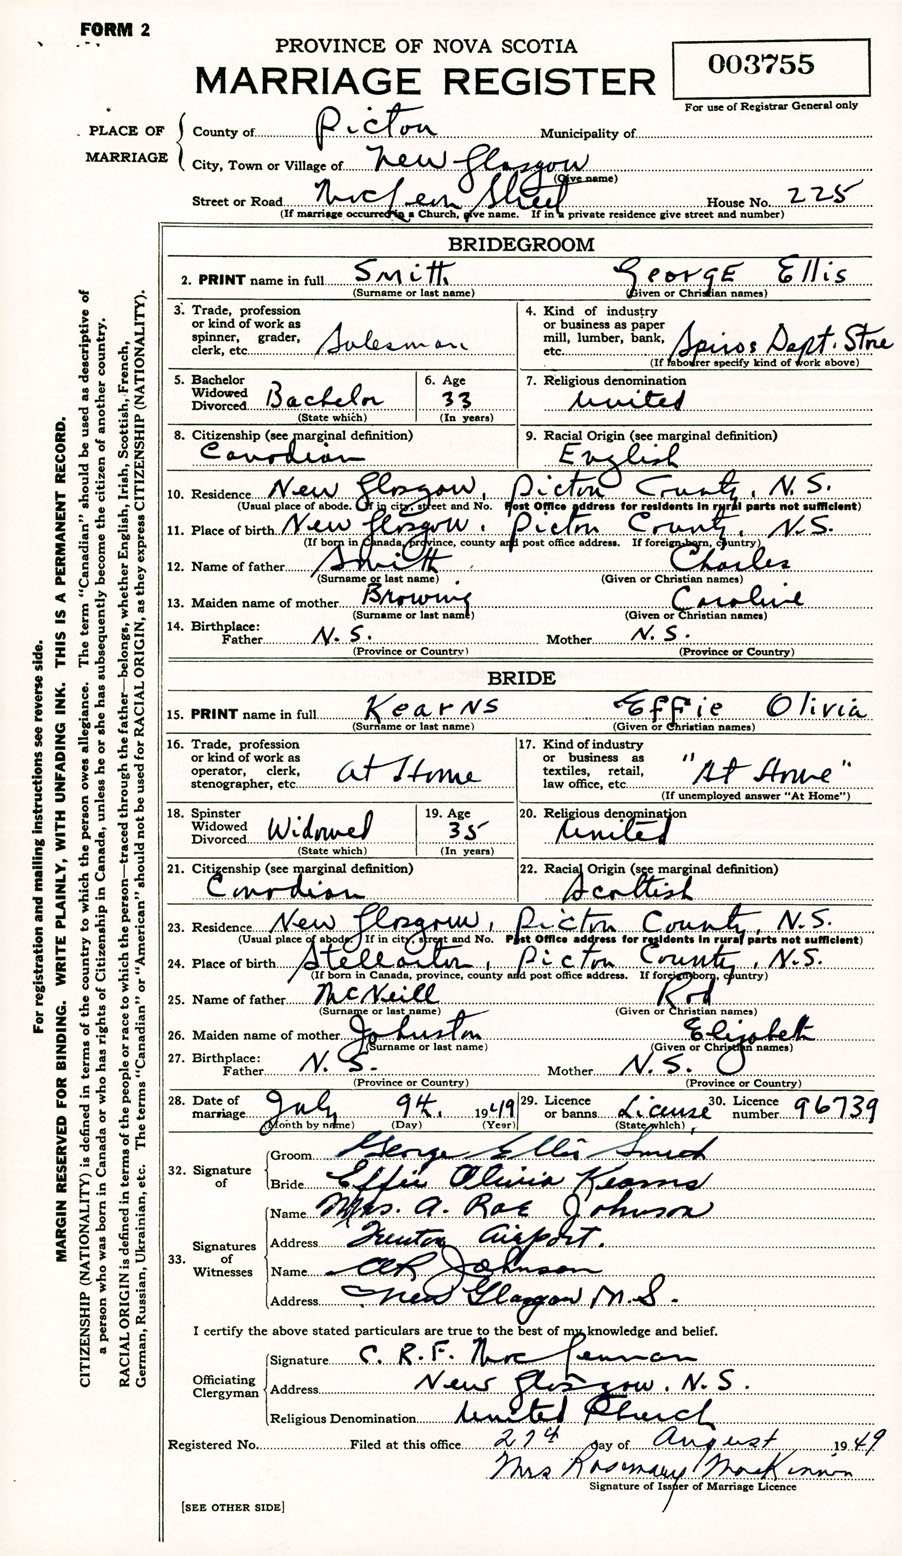 FORM 2
PROVINCE OF NOVA SCOTIA
MARRIAGE REGISTER
003755
For use of Registrar General only
PLACE OF MARRIAGE
County of Picton Municipality of
City, Town or Village of New Glasgow
(Give name)
Street or Road McLean Street House No. 225
(If marriage occurred in a Church, give name. If in a private residence give street and number)
BRIDEGROOM
2. PRINT name in full Smith George Ellis
(Surname or last name) (Given or Christian names)
3. Trade, profession or kind of work as spinner, grader, clerk, etc. Salesman
4. Kind of industry or business as paper mill, lumber, bank, etc. Spiros Dept. Store
(If labourer specify kind of work above)
5. Bachelor Widowed Divorced Bachelor
(State which)
6. Age 33
(In years)
7. Religious denomination United
8. Citizenship (see marginal definition) Canadian
9. Racial Origin (see marginal definition) English
10. Residence New Glasgow, Picton County, N.S.
(Usual place of abode. If in city, street and No. Post Office address for residents in rural parts not sufficient)
11. Place of birth New Glasgow, Picton County, N.S.
(If born in Canada, province, county and post office address. If foreign born, country)
12. Name of father Smith Charles
(Surname or last name) (Given or Christian names)
13. Maiden name of mother Browing Caroline
(Surname or last name) (Given or Christian names)
14. Birthplace: Father N.S. Mother N.S.
(Province or Country) (Province or Country)
BRIDE
15. PRINT name in full Kearns Effie Olivia
(Surname or last name) (Given or Christian names)
16. Trade, profession or kind of work as operator, clerk, stenographer, etc. at Home
17. Kind of industry or business as textiles, retail, law office, etc. "At Home"
(If unemployed answer "At Home")
18. Spinster Widowed Divorced Widowed
(State which)
19. Age 35
(In years)
20. Religious denomination United
21. Citizenship (see marginal definition) Canadian
22. Racial Origin (see marginal definition) Scottish
23. Residence New Glasgow, Picton County, N.S.
(Usual place of abode. If in city, street and No. Post Office address for residents in rural parts not sufficient)
24. Place of birth Stellarton, Picton County, N.S.
(If born in Canada, province, county and post office address. If foreign born, country)
25. Name of father McNeill Rod
(Surname or last name) (Given or Christian names)
26. Maiden name of mother Johnston Elizabeth
(Surname or last name) (Given or Christian names)
27. Birthplace: Father N.S. Mother N.S.
(Province or Country) (Province or Country)
28. Date of marriage July 9th, 1949
(Month by name) (Day) (Year)
29. Licence or banns License
(State which)
30. Licence number 96739
32. Signature of
Groom George Ellis Smith
Bride Effie Olivia Kearns
33. Signatures of Witnesses
Name Mrs. A. Rae Johnson
Address Trenton Airport.
Name AR Johnson
Address New Glasgow N.S.
I certify the above stated particulars are true to the best of my knowledge and belief.
Officiating Clergyman
Signature C. R. F. MacLennan
Address New Glasgow, N.S.
Religious Denomination United Church
Registered No. Filed at this office 27th day of August 1949
Mrs Rosemary MacKinnon
Signature of Issuer of Marriage Licence
[SEE OTHER SIDE]
For registration and mailing instructions see reverse side.
MARGIN RESERVED FOR BINDING. WRITE PLAINLY, WITH UNFADING INK. THIS IS A PERMANENT RECORD.
CITIZENSHIP (NATIONALITY) is defined in terms of the country to which the person owes allegiance. The term "Canadian" should be used as descriptive of
a person who was born in Canada or who has rights of Citizenship in Canada, unless he or she has subsequently become the citizen of another country.
RACIAL ORIGIN is defined in terms of the people or race to which the person—traced through the father—belongs, whether English, Irish, Scottish, French,
German, Russian, Ukrainian, etc. The terms "Canadian" or "American" should not be used for RACIAL ORIGIN, as they express CITIZENSHIP (NATIONALITY).